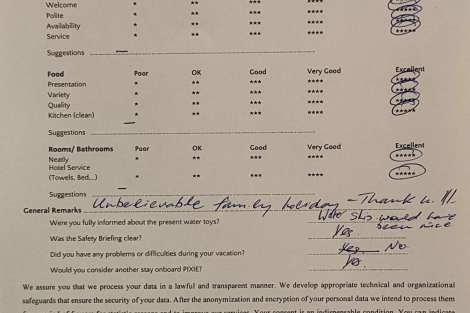 Welcome * ** *** **** *****
Polite * ** *** **** *****
Availability * ** *** **** *****
Service * ** *** **** *****
Suggestions
Food Poor OK Good Very Good Excellent
Presentation * ** *** **** *****
Variety * ** *** **** *****
Quality * ** *** **** *****
Kitchen (clean) * ** *** **** *****
Suggestions
Rooms/ Bathrooms Poor OK Good Very Good Excellent
Neatly * ** *** **** *****
Hotel Service
(Towels, Bed,..) * ** *** **** *****
Suggestions
General Remarks Unbelievable family holiday - Thank u. !!!
Were you fully informed about the present water toys? Water slip would have been nice
Was the Safety Briefing clear? Yes.
Did you have any problems or difficulties during your vacation? Yes No
Would you consider another stay onboard PIXIE? Yes.
We assure you that we process your data in a lawful and transparent manner. We develop appropriate technical and organizational
safeguards that ensure the security of your data. After the anonymization and encryption of your personal data we intend to process them